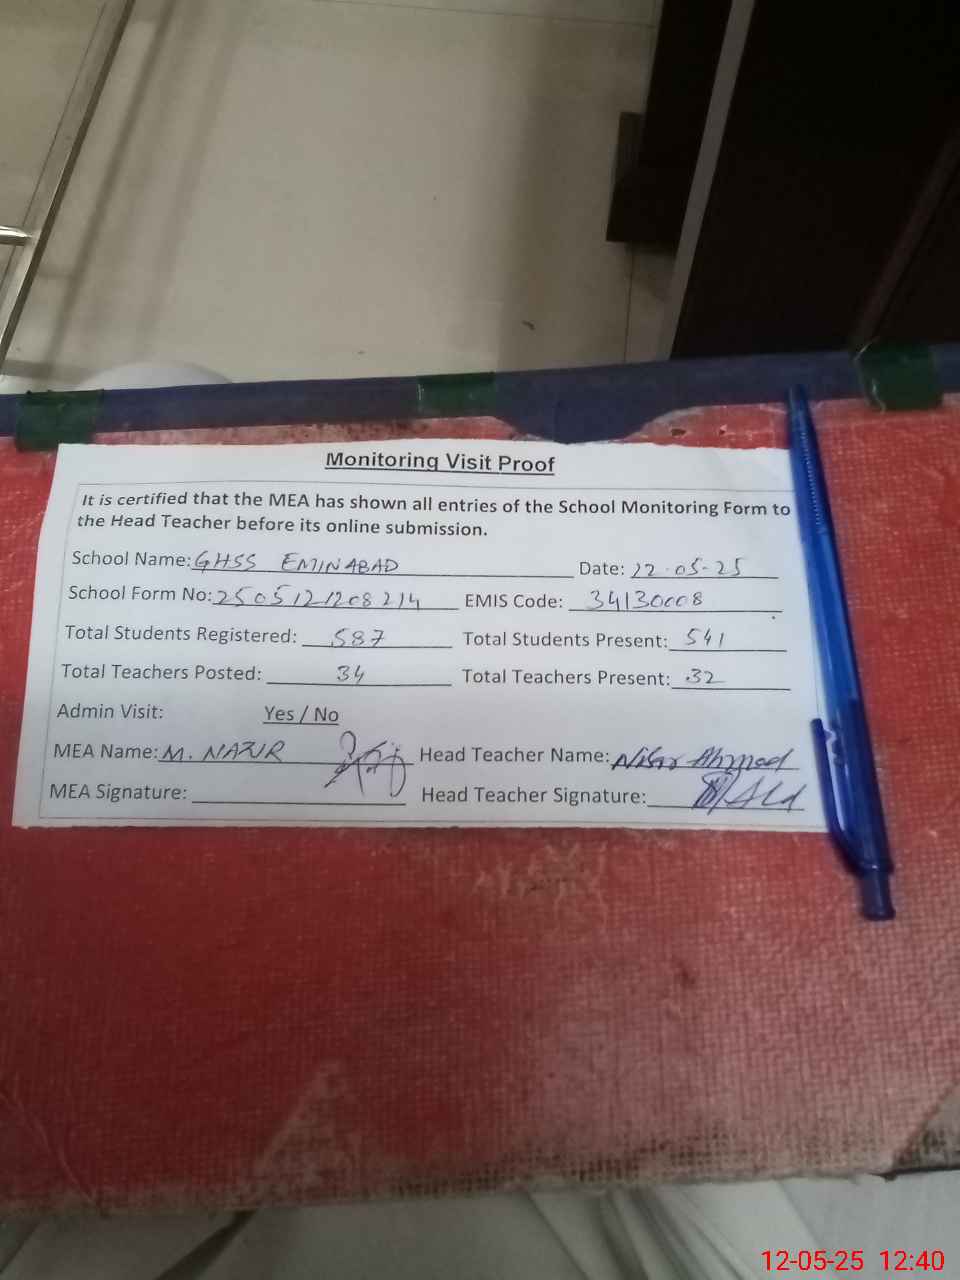 Monitoring Visit Proof
It is certified that the MEA has shown all entries of the School Monitoring Form to
the Head Teacher before its online submission.
School Name: GHSS EMINABAD Date: 12-05-25
School Form No: 2505121208214 EMIS Code: 34130008
Total Students Registered: 587 Total Students Present: 541
Total Teachers Posted: 34 Total Teachers Present: 32
Admin Visit: Yes / No
MEA Name: M. NAZIR Head Teacher Name: Nisar Ahmad
MEA Signature: Head Teacher Signature:
12-05-25 12:40